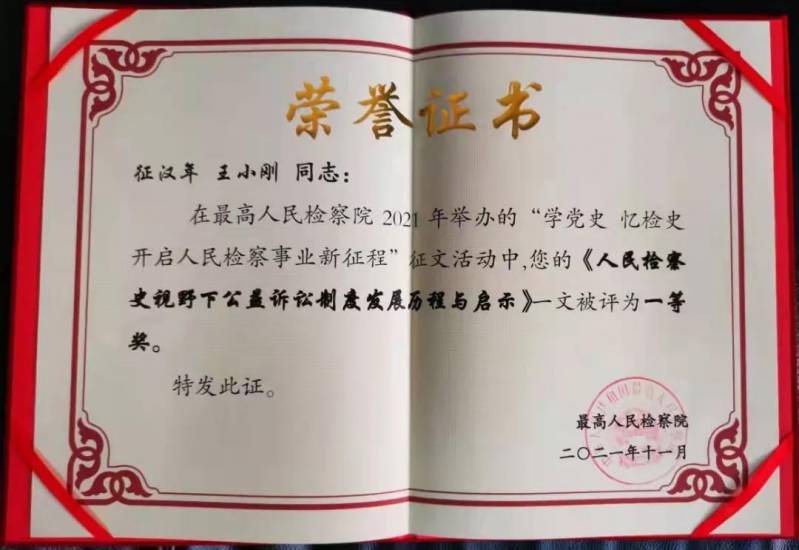 荣誉证书
征汉年 王小刚 同志：
在最高人民检察院 2021 年举办的“学党史 忆检史
开启人民检察事业新征程”征文活动中,您的《人民检察
史视野下公益诉讼制度发展历程与启示》一文被评为一等
奖。
特发此证。
最高人民检察院
二〇二一年十一月